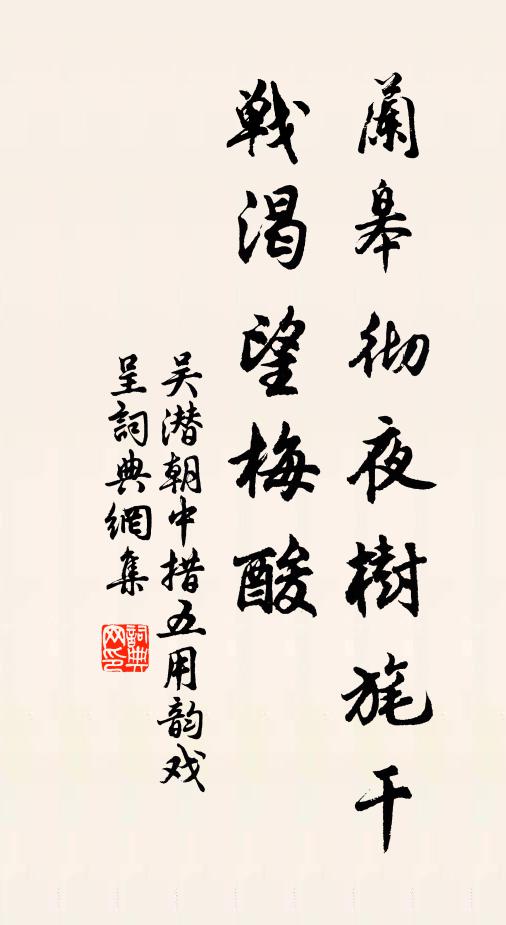 蘭皋彻夜樹旄干
戰渴望梅酸
吴潜朝中措五用韵戏
呈詞典網集
詞典網印